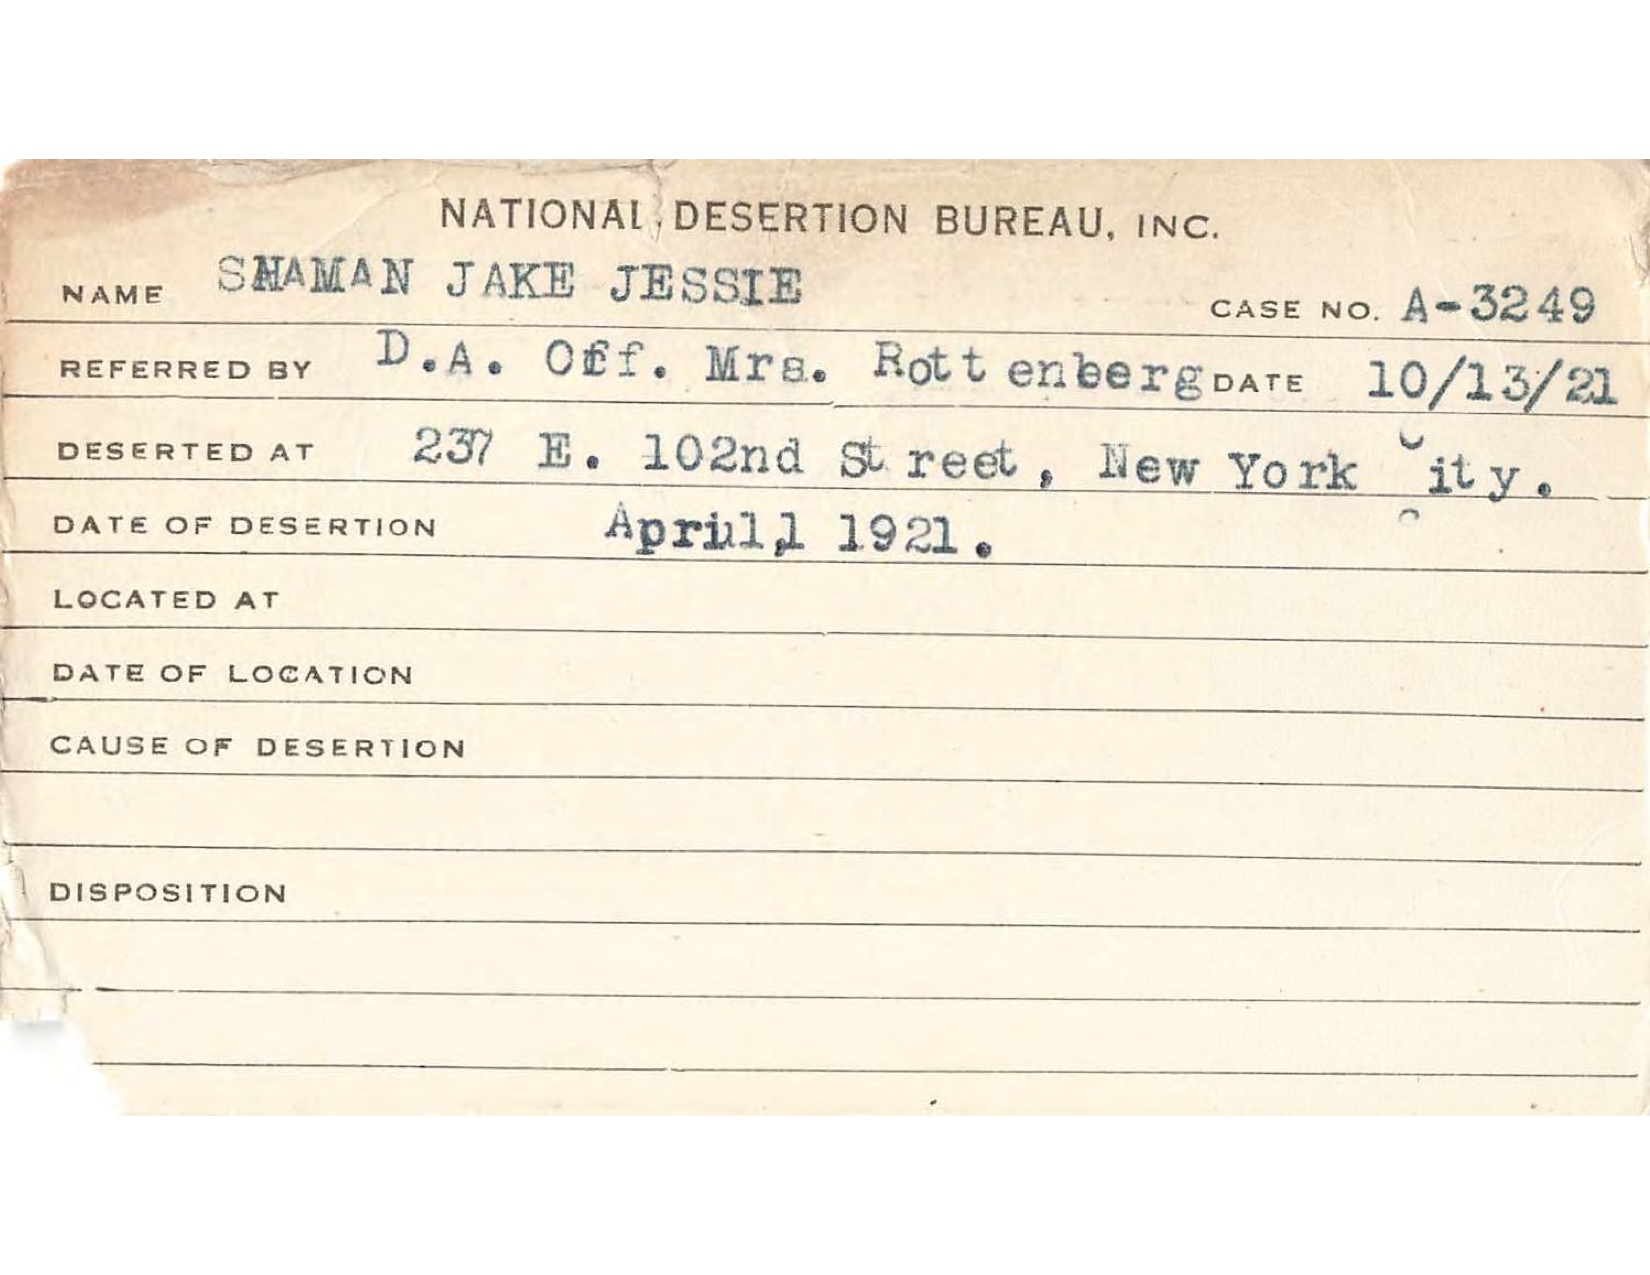 NATIONAL DESERTION BUREAU, INC.
NAME SHAMAN JAKE JESSIE CASE NO. A-3249
REFERRED BY D.A. Off. Mrs. Rottenberg DATE 10/13/21
DESERTED AT 237 E. 102nd Street, New York City.
DATE OF DESERTION April,1 1921.
LOCATED AT
DATE OF LOCATION
CAUSE OF DESERTION
DISPOSITION